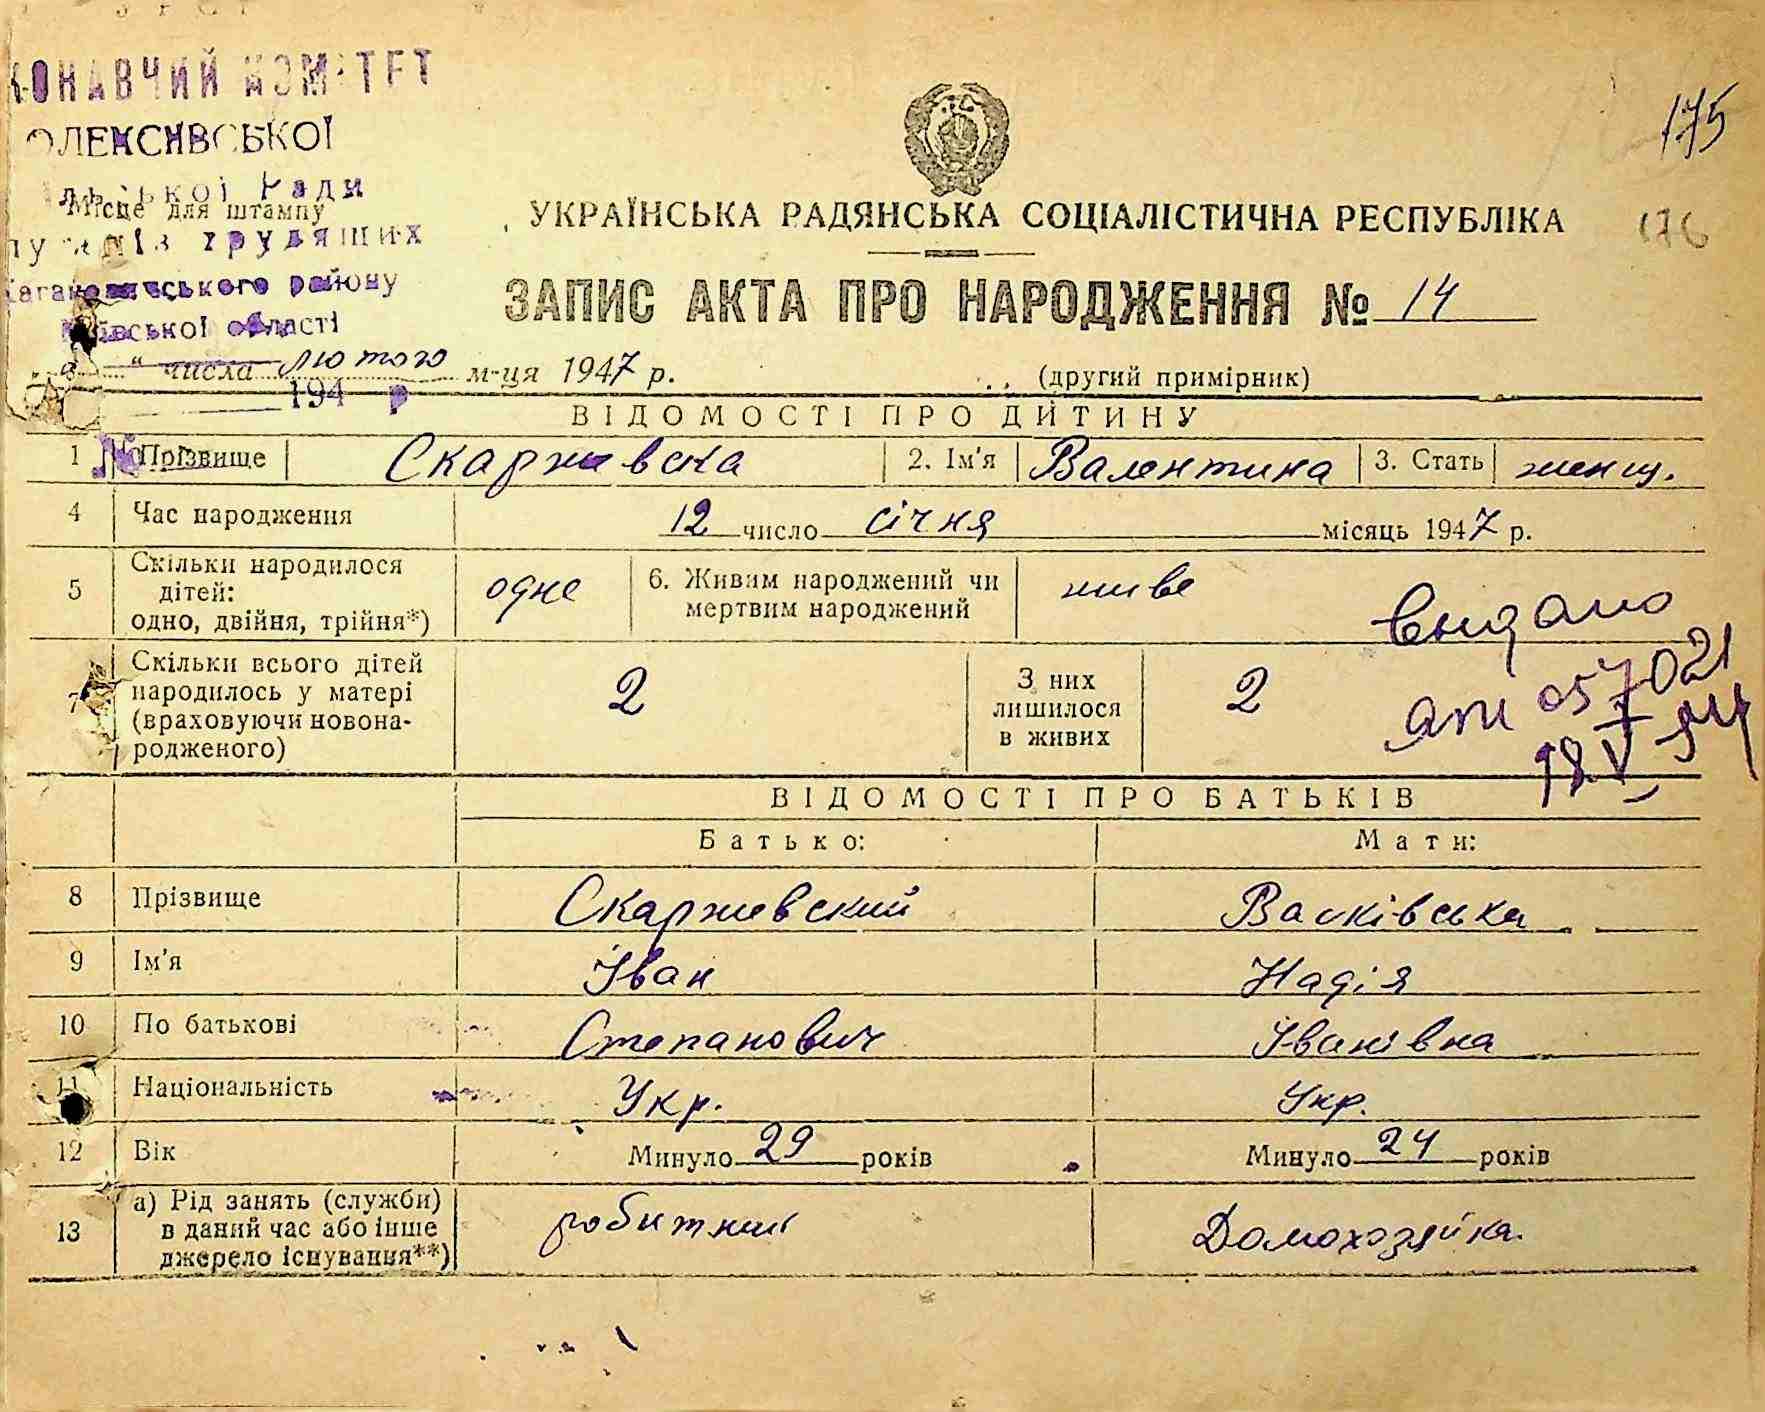 КОНАВЧИЙ КОМІТЕТ
ОЛЕКСІЇВСЬКОЇ
Ради
Місце для штампу
трудящих
Кагановичського району
Київської області
175
176
УКРАЇНСЬКА РАДЯНСЬКА СОЦІАЛІСТИЧНА РЕСПУБЛІКА
ЗАПИС АКТА ПРО НАРОДЖЕННЯ № 14
" числа лютого м-ця 1947 р. (другий примірник)
194 р
ВІДОМОСТІ ПРО ДИТИНУ
1 Прізвище Скаржевска 2. Ім'я Валентина 3. Стать женщ.
4 Час народження 12 число січня місяць 1947 р.
5 Скільки народилося дітей: одно, двійня, трійня*) одне 6. Живим народжений чи мертвим народжений живе
видано
7 Скільки всього дітей народилось у матері (враховуючи новонародженого) 2 З них лишилося в живих 2
057021
18 V 54
ВІДОМОСТІ ПРО БАТЬКІВ
Батько: Мати:
8 Прізвище Скаржевский Васківська
9 Ім'я Іван Надія
10 По батькові Степанович Іванівна
11 Національність Укр. Укр.
12 Вік Минуло 29 років Минуло 24 років
13 а) Рід занять (служби) в даний час або інше джерело існування**) робитник Домохозяйка.